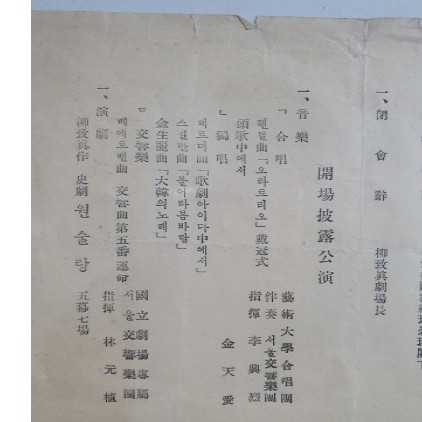 一、閉會辭 柳致眞劇場長
開場披露公演
一、音樂
ㄱ 合唱 藝術大學合唱團
헨델曲「오라트리오」戴冠式 伴奏 서울交響樂團
頌歌中에서 指揮 李興烈
ㄴ 獨唱 金天愛
베르디曲「歌劇아이다中에서」
金生麗曲「大韓의노래」
ㄷ 交響樂 國立劇場專屬 서울交響樂團
베에토벤曲 交響曲第五番運命 指揮 林元植
一、演劇
柳致眞作 史劇 원술랑 五幕七場